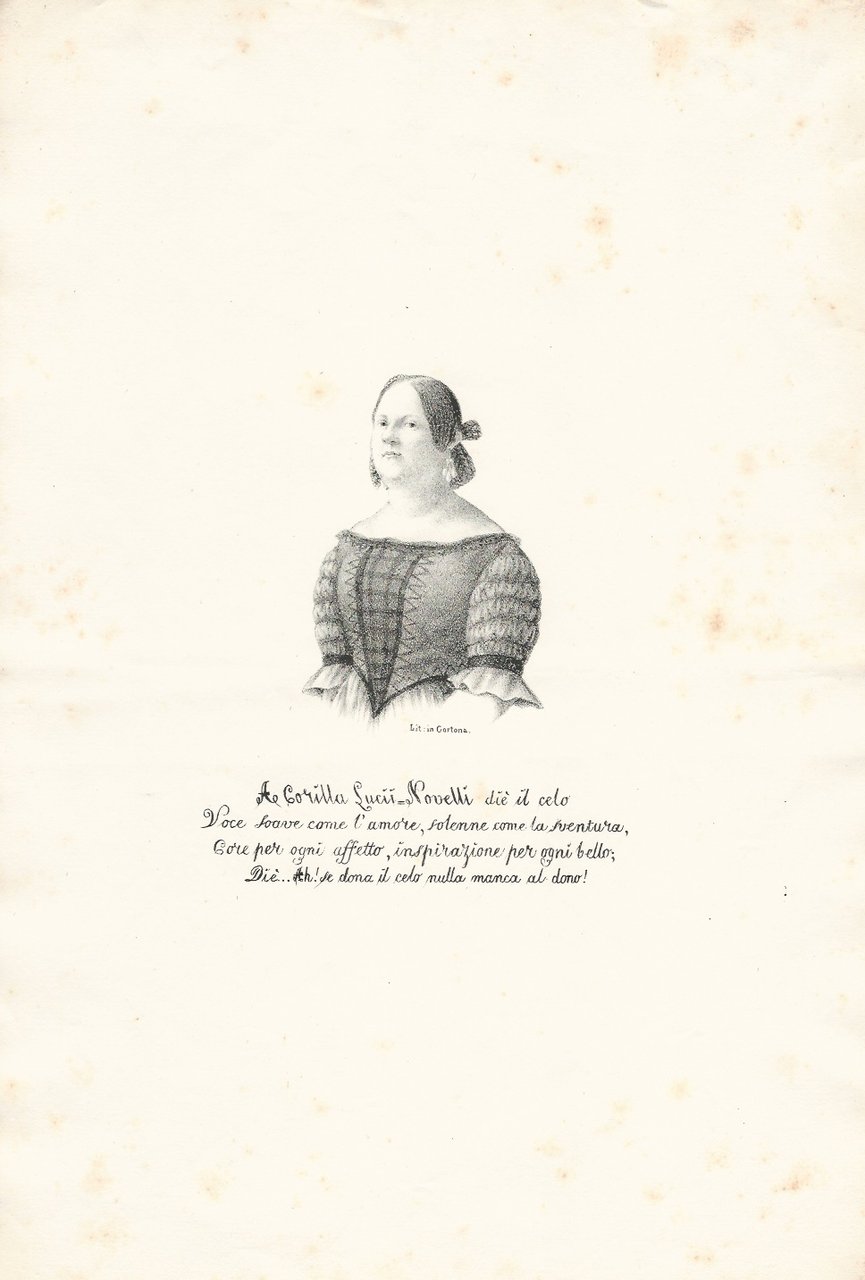 Lit: in Cortona.
A Corilla Lucii=Novelli diè il celo
Voce soave come l'amore, solenne come la sventura,
Core per ogni affetto, inspirazione per ogni bello;
Diè... Ah! se dona il celo nulla manca al dono!